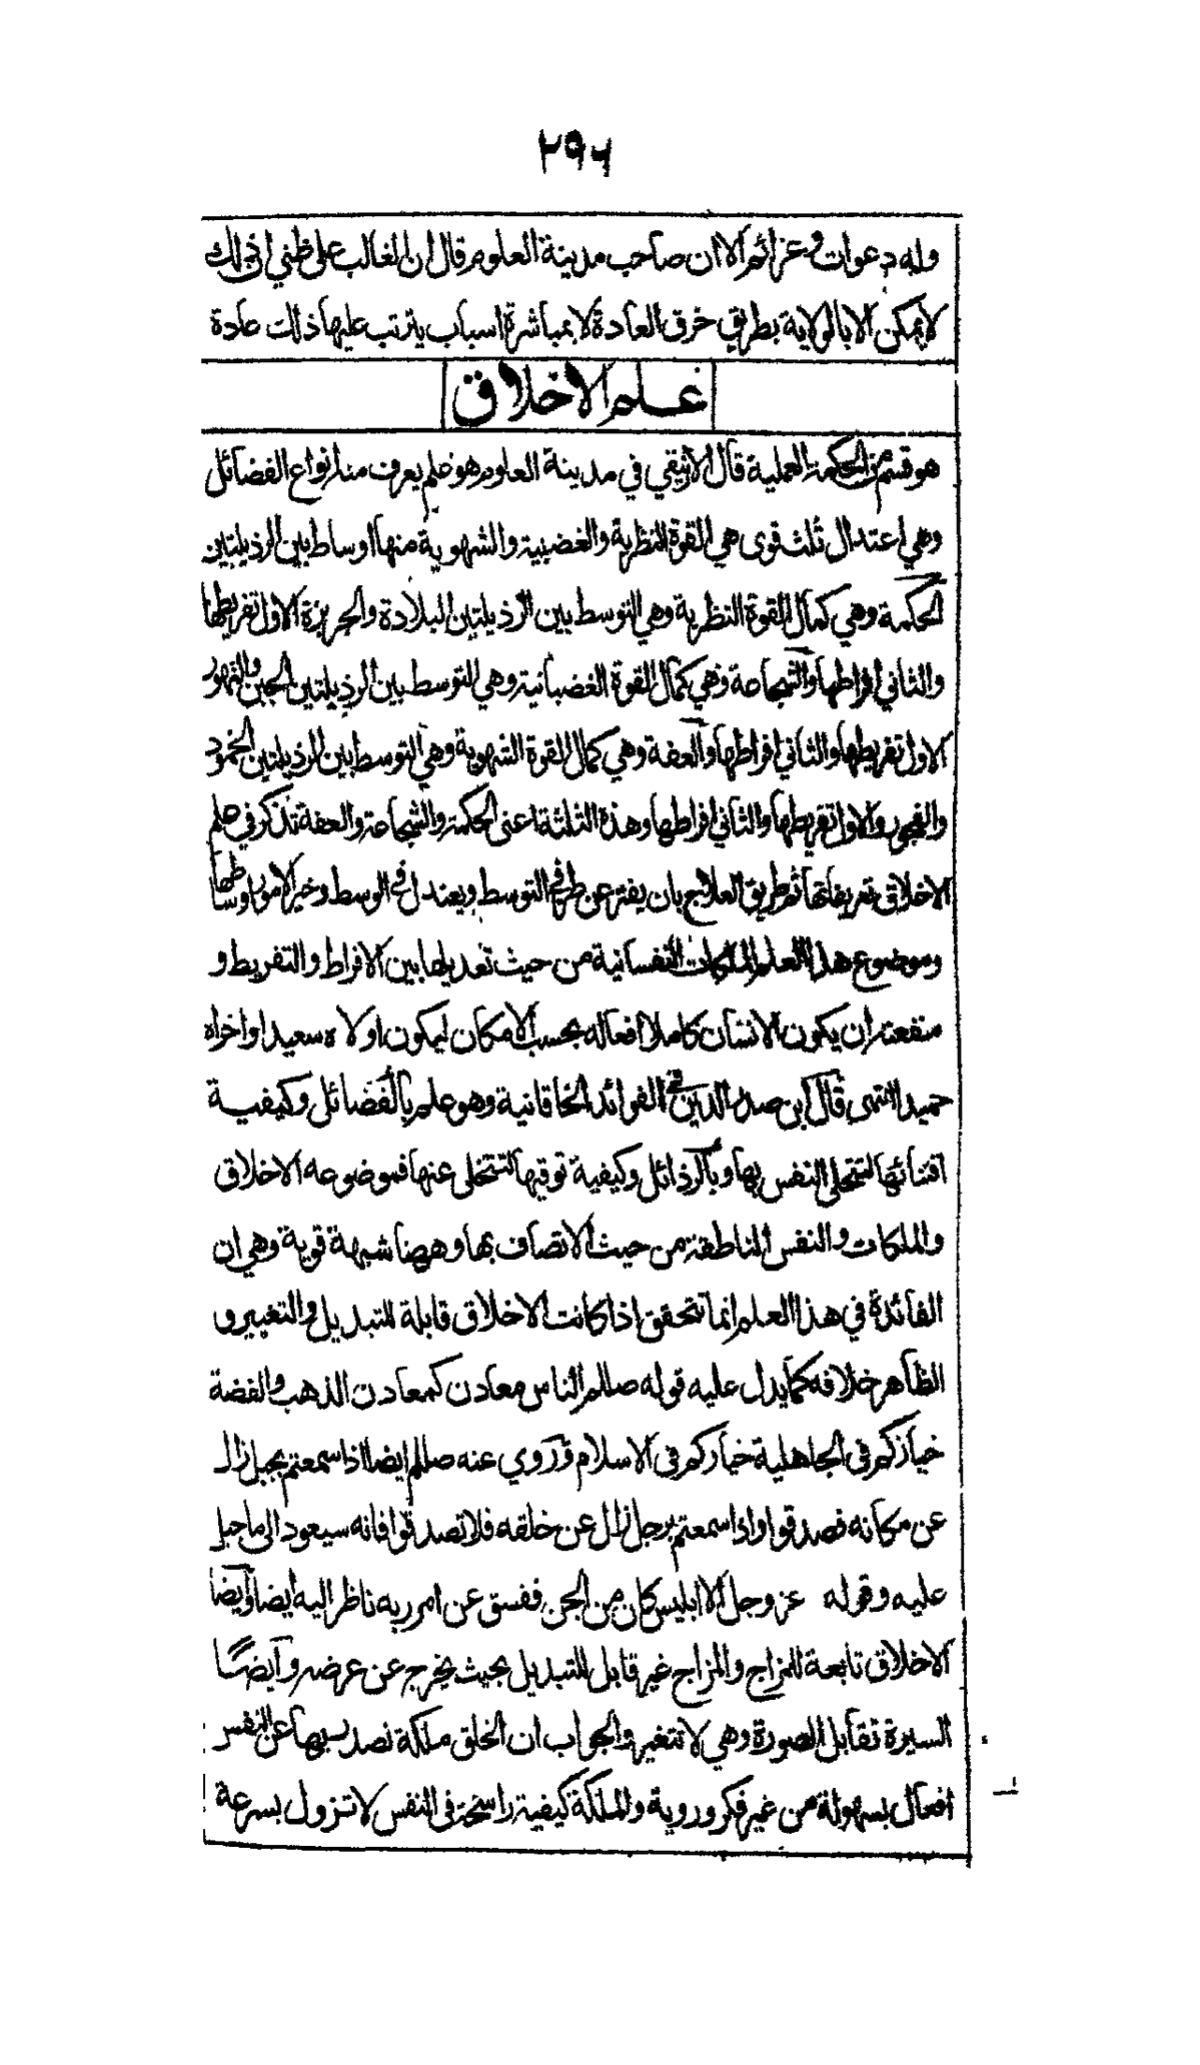 ٢٩٦
وله دعوات وعزائم الا ان صاحب مدينة العلوم قال ان الغالب على ظني ان ذلك
لا يمكن الا بالولاية بطريق خرق العادة لا بمباشرة اسباب يترتب عليها ذلك عادة
علم الاخلاق
هو قسم من الحكمة العملية قال الارنيقي في مدينة العلوم هو علم يعرف منه انواع الفضائل
وهي اعتدال ثلث قوى هي القوة النظرية والغضبية والشهوية منها اوساط بين الرذيلتين
الحكمة وهي كمال القوة النظرية وهي التوسط بين الرذيلتين البلادة والجربزة الاول تفريطها
والثاني افراطها والشجاعة وهي كمال القوة الغضبانية وهي التوسط بين الرذيلتين الجبن والتهور
الاول تفريطها والثاني افراطها والعفة وهي كمال القوة الشهوية وهي التوسط بين الرذيلتين الخمود
والفجور والاول تفريطها والثاني افراطها وهذه الثلثة اعني الحكمة والشجاعة والعفة تذكر في علم
الاخلاق تعريفاتها ثم طريق العلاج بان يفتر عن طرفي التوسط ويعتدل في الوسط وخير الامور اوساطها
وموضوع هذا العلم الملكات النفسانية من حيث تعديلها بين الافراط والتفريط و
منفعته ان يكون الانسان كاملا افعاله بحسب الامكان ليكون اولاه سعيدا واخراه
حميدا انتهى قال ابن صدر الدين في الفوائد الخاقانية وهو علم بالفضائل وكيفية
اقتنائها لتتحلى النفس بها وبالرذائل وكيفية توقيها لتتخلى عنها فموضوعه الاخلاق
والملكات والنفس الناطقة من حيث الاتصاف بها وههنا شبهة قوية وهي ان
الفائدة في هذا العلم انما تتحقق اذا كانت الاخلاق قابلة للتبديل والتغيير و
الظاهر خلافه كما يدل عليه قوله صللم الناس معادن كمعادن الذهب والفضة
خياركم في الجاهلية خياركم في الاسلام وروي عنه صللم ايضا اذا سمعتم بجبل زال
عن مكانه فصدقوا واذا سمعتم برجل زال عن خلقه فلا تصدقوا فانه سيعود الى ما جبل
عليه وقوله عز وجل الا ابليس كان من الجن ففسق عن امر ربه ناظر اليه ايضا وايضا
الاخلاق تابعة للمزاج والمزاج غير قابل للتبديل بحيث يخرج عن عرضه وايضًا
السيرة تقابل الصورة وهي لا تتغير والجواب ان الخلق ملكة تصدر بسببها عن النفس
افعال بسهولة من غير فكر وروية والملكة كيفية راسخة في النفس لا تزول بسرعة